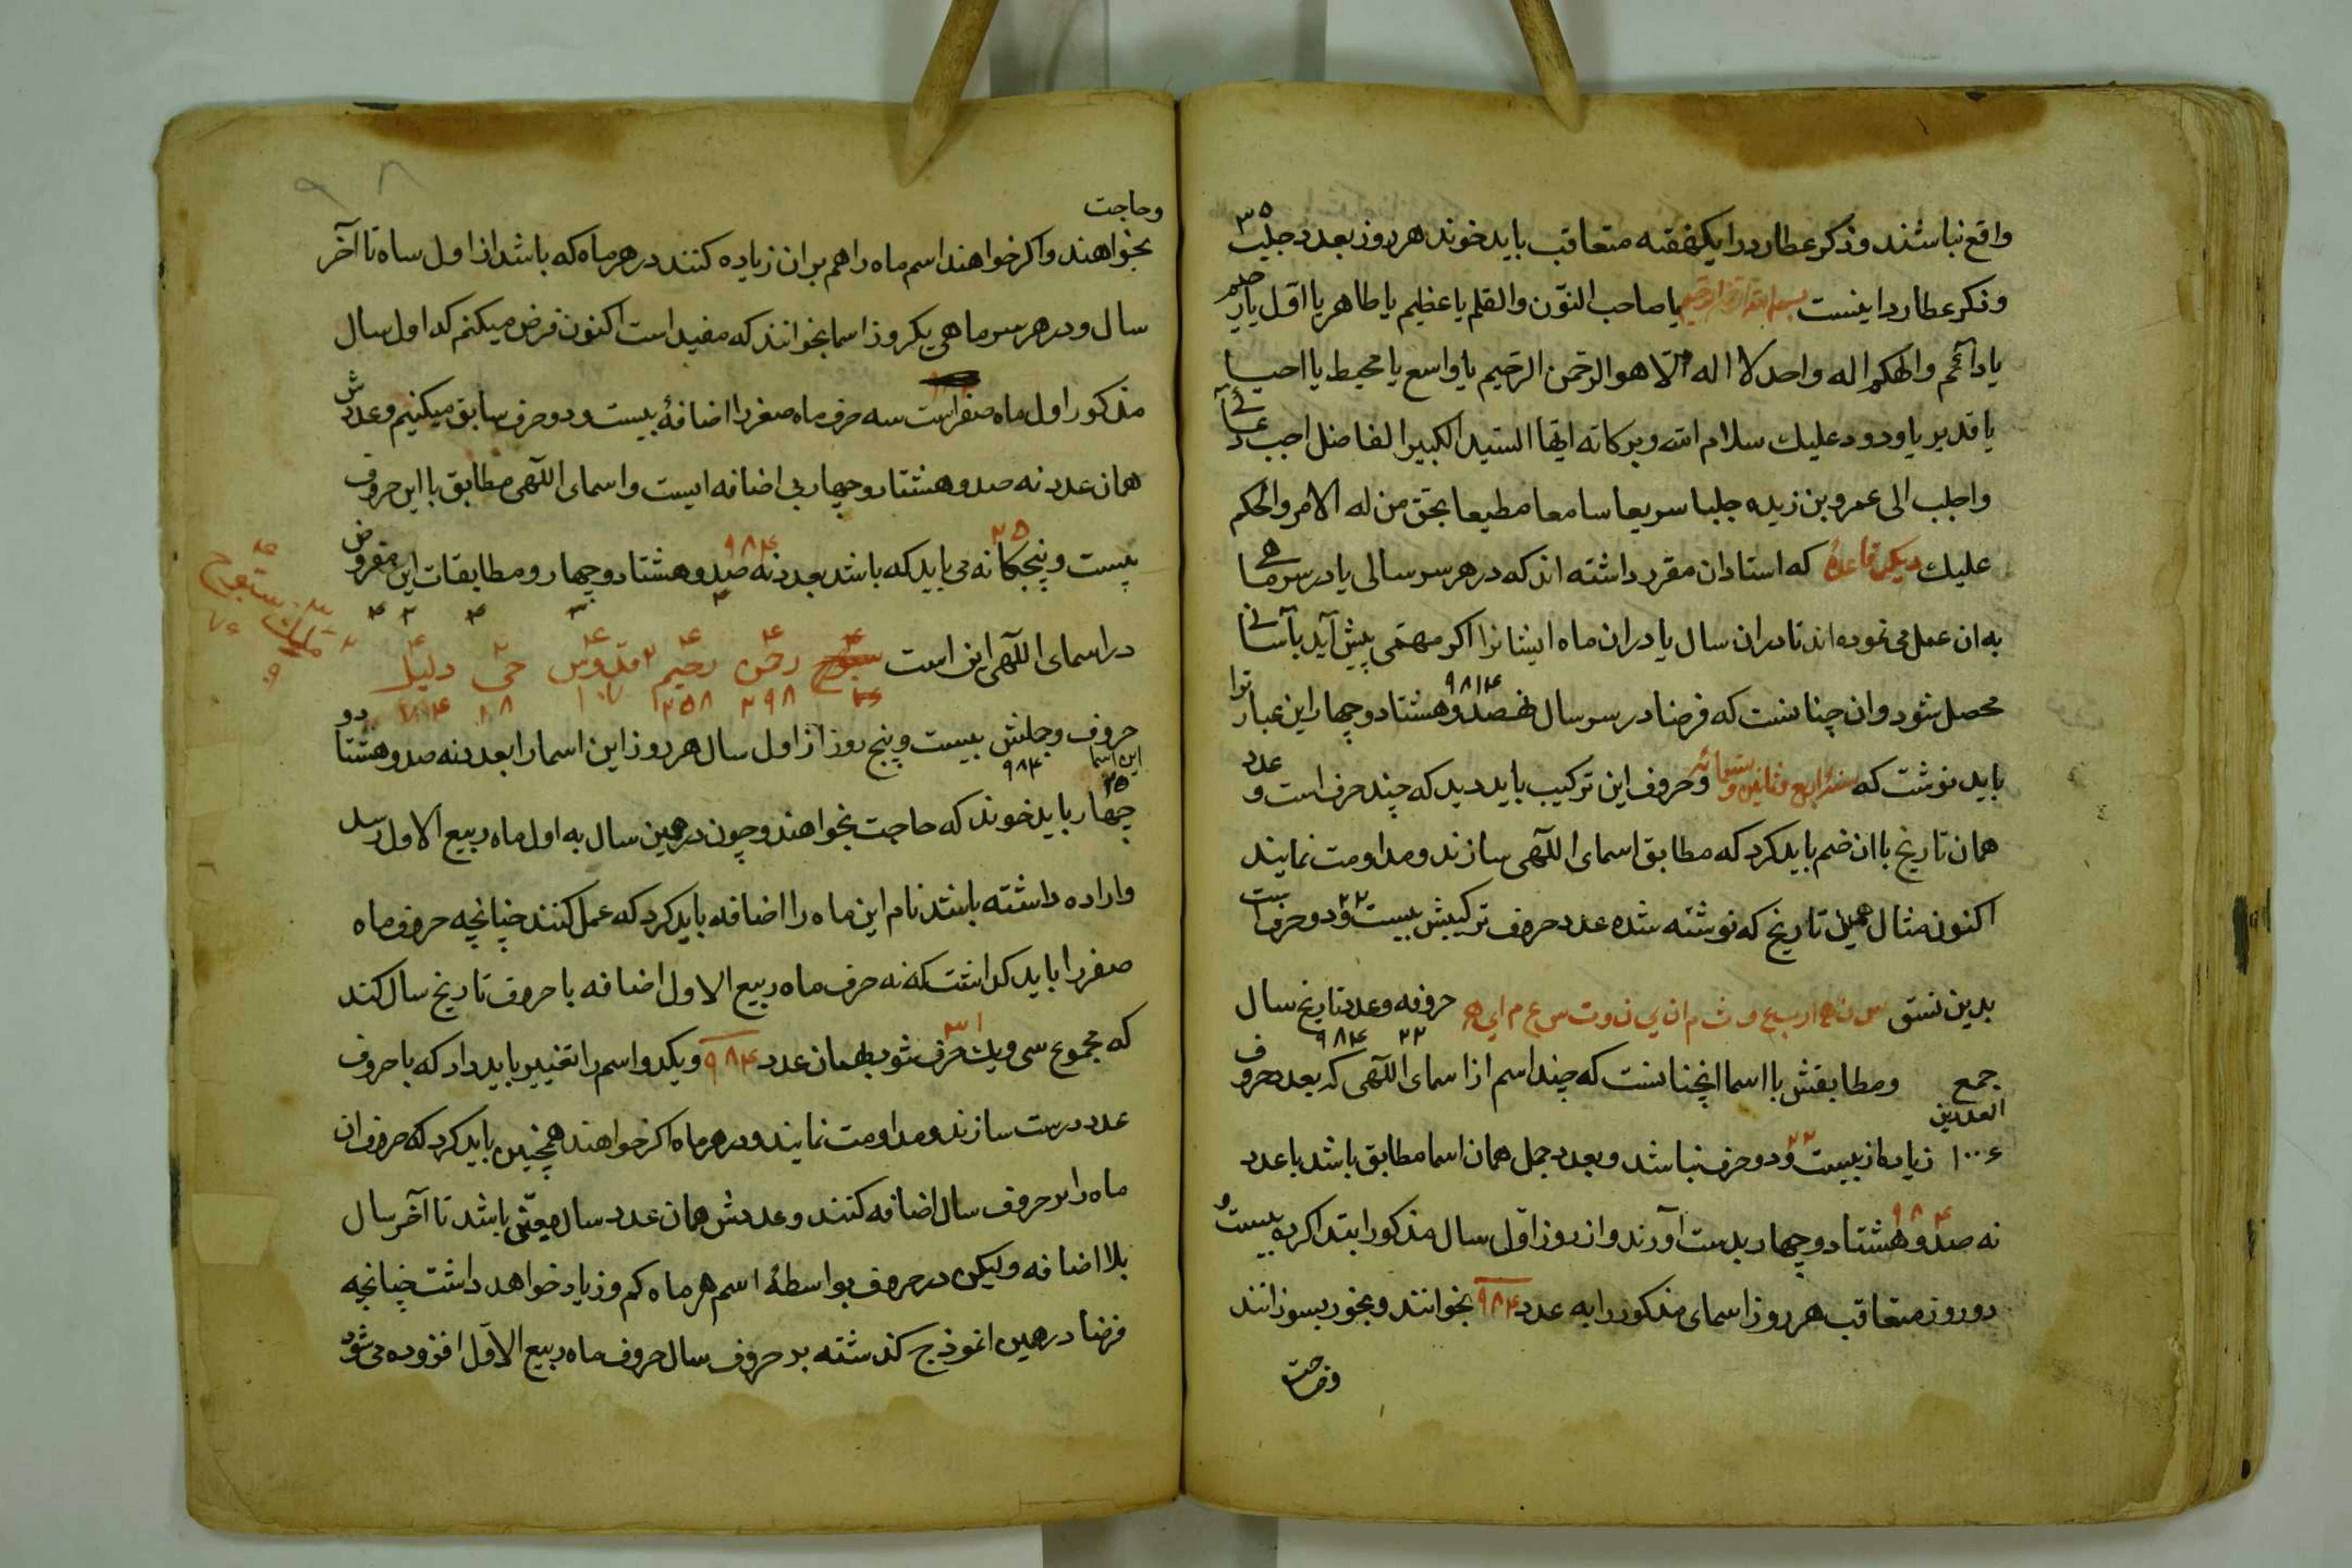 واقع نباشند و ذکر عطارد را یکهفته متعاقب باید خوند هر روز بعدد جلب ۳۵
و ذکر عطارد اینست یا صاحب النّون والقلم یا عظیم یا طاهر یا اوّل یا
یا دائم والهکم اله واحد لا اله الّا هو الرّحمن الرّحیم یا واسع یا محیط یا
یا قدیر یا ودود علیک سلام الله وبرکاته ایّها السّید الکبیر الفاضل اجب
واجلب الی عمرو بن زیده جلبا سریعا سامعا مطیعا بحق من له الامر والحکم
علیك دیگر قاعدهٔ که استادان مقرر داشته اند که در هر سر سالی یا در سر ماهی
به ان عمل می نموده اند تا در ان سال یا در ان ماه ایشانرا اکر مهمّی پیش آید بآسانی
۹۸۴
محصل شود و ان چنانست که فرضا در سر سال نهصد و هشتاد و چهار این عبارتوا
باید نوشت که سنه اربع و ثمانین و تسعمائه و حروف این ترکیب باید دید که چند حرف است و عدد
همان تاریخ با ان ضم باید کرد که مطابق اسمای اللهی سازند و مداومت نمایند
اکنون مثال همین تاریخ که نوشته شده عدد حروف ترکیبش بیست و دو حرف است ۲۲
بدین نسق س ن ه ا ر ب ع و ث م ا ن ی ن و ت س ع م ا ی ه حروفه وعدد تاریخ سال
۲۲ ۹۸۴
جمع العددین ومطابقش با اسما انچنانست که چند اسم از اسمای اللهی که بعدد حروف
۱۰۰۶ زیاده از بیست و دو حرف نباشد و بعدد جمل همان اسما مطابق باشد با عدد
۹۸۴
نه صد و هشتاد و چهار بدست آورند و از روز اوّل سال مذکور ابتدا کرده بیست و
دو روز متعاقب هر روز اسمای مذکور را به عدد ۹۸۴ بخوانند و بخور بسوزانند
وحاجت
وحاجت
بخواهند و اکر خواهند اسم ماه را هم بران زیاده کنند در هر ماه که باشد از اول ساه تا آخر
سال و در هر سر ماهی یکروز اسما بخوانند که مفید است اکنون فرض میکنم که اول سال
مذکور اول ماه صفر است سه حرف ماه صفر را اضافهٔ بیست و دو حرف سابق میکنیم وعددش
همان عدد نه صد و هشتاد و چهار بی اضافه ایست و اسمای اللهی مطابق با این حروف
۲۵ ۹۸۴
بیست و پنجکانه می باید که باشد بعدد نه صد و هشتاد و چهار و مطابقات این مفروض
در اسمای اللهی این است سبوح رحمن رحیم قدوس حیّ دلیل
۲۹۸ ۲۵۸ ۱۸ ۷۴
حروف وجلنش بیست و پنج روز از اول سال هر روز این اسما را بعدد نه صد و هشتاد و
این اسما ۲۵ ۹۸۴
چهار باید خوند که حاجت بخواهند و چون در همین سال به اول ماه ربیع الاول رسد
و اراده داشته باشد نام این ماه را اضافه باید کرد که عمل کنند چنانچه حروف ماه
صفر را باید کذاشت که نه حرف ماه ربیع الاول اضافه با حروف تاریخ سال کند
که مجموع سی و یك حرف شود بهمان عدد ۹۸۴ و یکدو اسم را تغییر باید داد که با حروف ۳۱
عدد درست سازند و مداومت نمایند و در هر ماه اکر خواهند همچنین باید کرد که حروف ان
ماه را بر حروف سال اضافه کنند وعددش همان عدد سال معیّن باشد تا آخر سال
بلا اضافه ولیکن در حروف بواسطهٔ اسم هر ماه کم و زیاد خواهد داشت چنانچه
فرضا در همین انموذج کذشته بر حروف سال حروف ماه ربیع الاوّل افزوده می شود